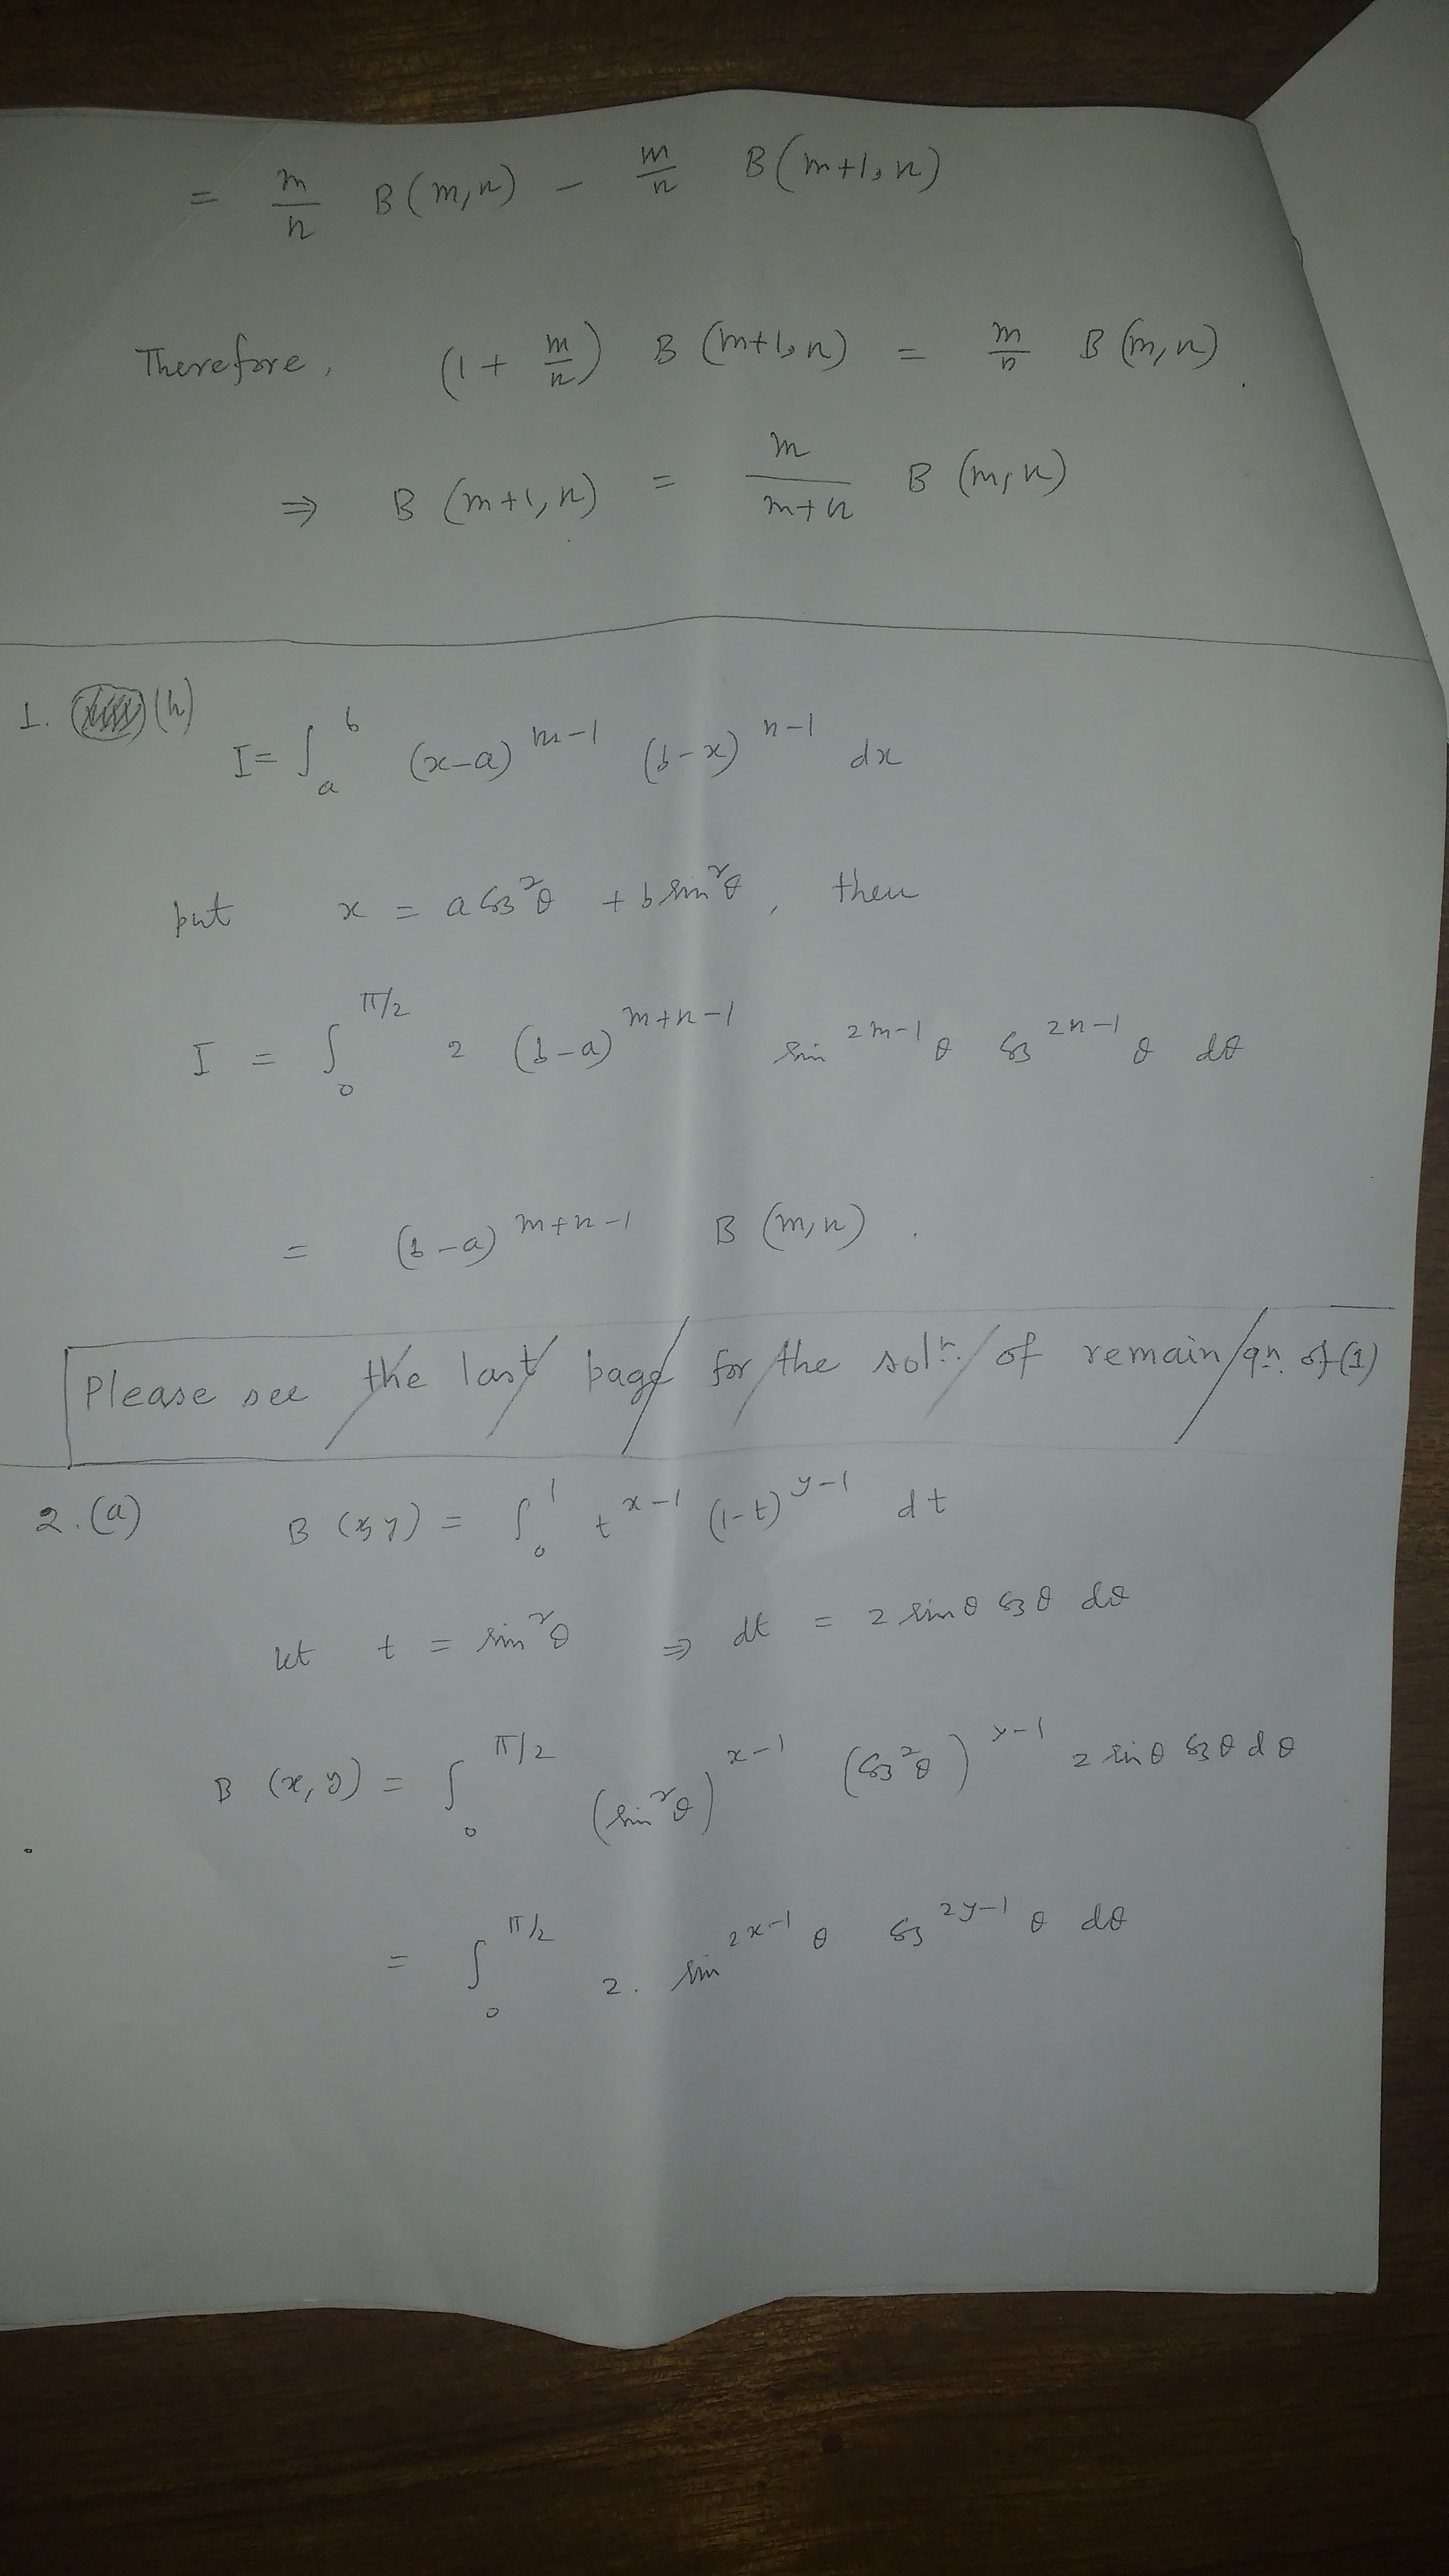 = m/n B(m,n) - m/n B(m+1,n)
Therefore, (1 + m/n) B(m+1,n) = m/n B(m,n).
⇒ B(m+1,n) = m/(m+n) B(m,n)
1. (h)
I = ∫_a^b (x-a)^{m-1} (b-x)^{n-1} dx
put x = a cos²θ + b sin²θ, then
I = ∫_0^{π/2} 2 (b-a)^{m+n-1} sin^{2m-1}θ cos^{2n-1}θ dθ
= (b-a)^{m+n-1} B(m,n).
Please see the last page for the solⁿ. of remain qn. of (1)
2. (a) B(x,y) = ∫_0^1 t^{x-1} (1-t)^{y-1} dt
let t = sin²θ ⇒ dt = 2 sinθ cosθ dθ
B(x,y) = ∫_0^{π/2} (sin²θ)^{x-1} (cos²θ)^{y-1} 2 sinθ cosθ dθ
= ∫_0^{π/2} 2. sin^{2x-1}θ cos^{2y-1}θ dθ